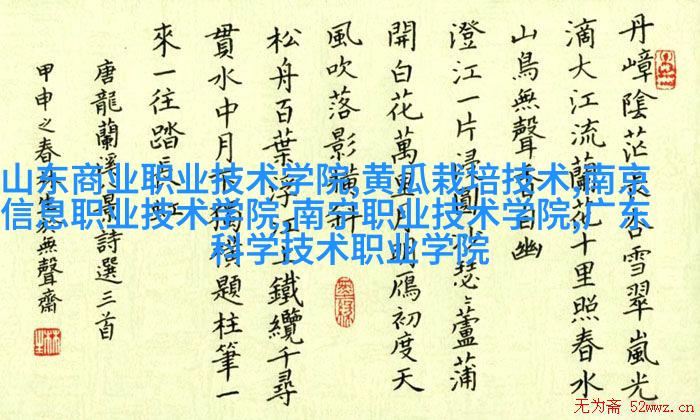 丹嶂陰茫雪翠嵐光
滴大江流蘭花十里照春水
山鳥無聲幽
澄江一片浸圓瑟〻蘆蒲
開白花萬里月明鴈初度天
風吹落影橫斜
松舟百葉浮江上鐵纜千尋
貫水中月獨題柱筆一
來一往踏長江
唐龍蘭溪景詩選三首
甲申之春於無聲齋
山东商业职业技术学院,黄瓜栽培技术,南京
信息职业技术学院,南宁职业技术学院,广东
科学技术职业学院
无为斋 52wwz.cn